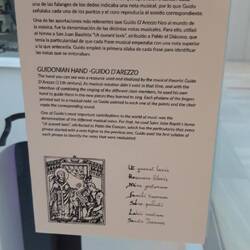 una de las falanges de los dedos indicaba una nota musical, por lo que Guido
señalaba cada uno de los puntos y el coro reproducía el sonido correspondiente.
Una de las aportaciones más relevantes que Guido D'Arezzo hizo al mundo de
la música, fue la denominación de las distintas notas musicales. Para ello, utilizó
el himno a San Juan Bautista "Ut queant laxis", atribuido a Pablo el Diácono, que
tenía la particularidad de que cada frase musical empezaba con una nota superior
a la que antecedía. Guido empleó la primera sílaba de cada frase para identificar
las notas que se entonaban.
GUIDONIAN HAND - GUIDO D'AREZZO
The hand you can see was a resource used and idealized by the musical theorist Guido
D'Arezzo (11th century). As musical notation didn't exist at that time, and with the
intention of combining the singing of the different choir members, he used his own
hand to guide them in the new pieces they learned to sing. Each phalanx of the fingers
pointed out to a musical note, so Guido pointed to each one of the points and the choir
made the corresponding sound.
One of Guido's most important contributions to the world of music was the
denomination of the different musical notes. For that, he used Saint John Baptist's hymn
"Ut queant laxis", attributed to Pablo the Deacon, which has the particularity that every
phrase started with a note higher to the previous one. Guido used the first syllable of
each phrase to identify the notes they sang.
Ut queant laxis
Resonare fibris
Mira gestorum
Famuli tuorum
Solve polluti
Labii reatum
Sancte Ioannes